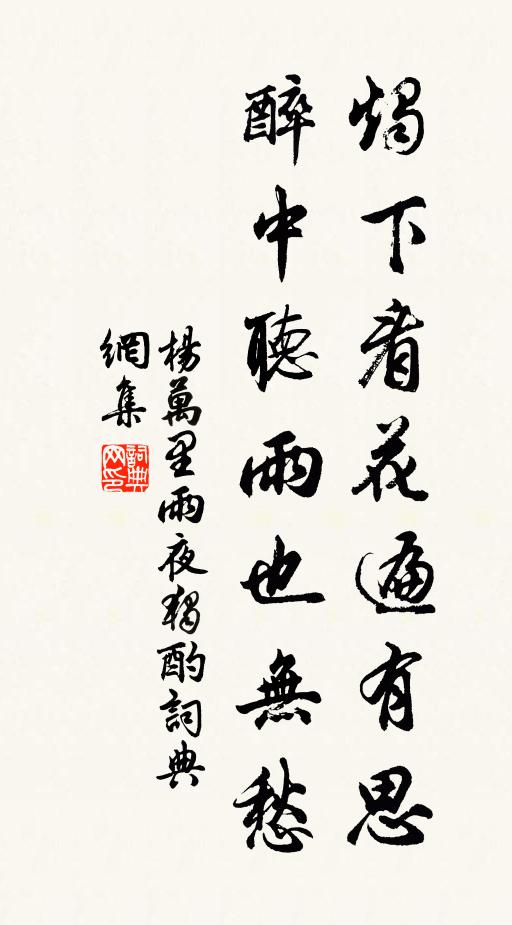 燭下看花遍有思
醉中聽雨也無愁
楊萬里雨夜獨酌詞典
網集
詞典
网印